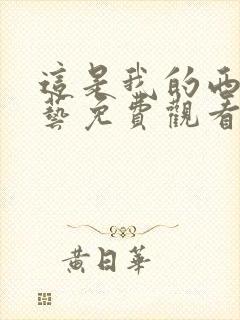 這是我的西
藝免費觀看
黃日華